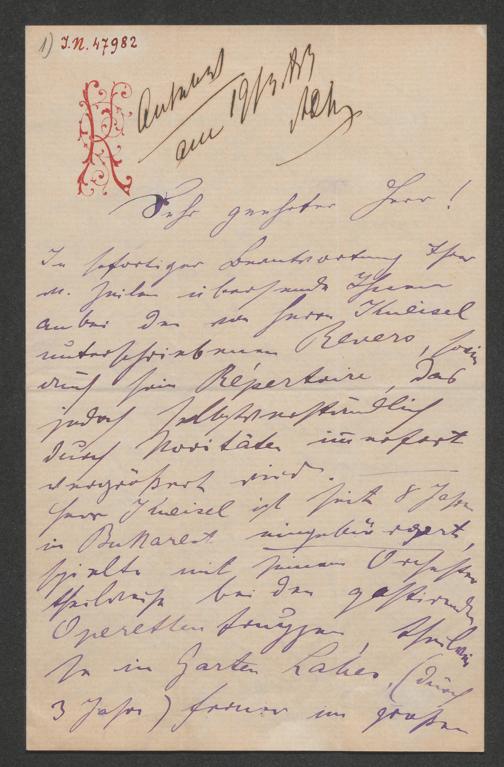 1) I.N. 47982
am 19/3 83
Sehr geehrter Herr!
In sofortiger Beantwortung Ihrer
w. Zeilen übersende Ihnen
anbei den von Herrn Kneisel
unterschriebenen Revers, sowie
auch sein Répertoire, das
jedoch selbstverständlich
durch Novitäten immerfort
vergrößert wird.
Herr Kneisel ist seit 8 Jahren
in Bukarest eingebürgert,
spielte mit seinem Orchester
theilweise bei den gastirenden
Operettentruppen, theilwei
se in Garten Rahes, (durch
3 Jahre) ferner im großen